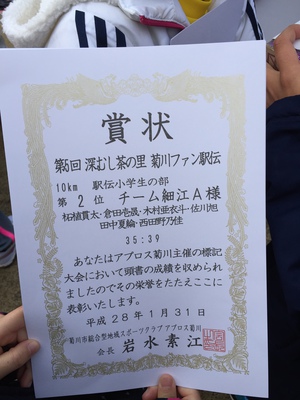 賞状
第5回 深むし茶の里 菊川ファン駅伝
10km 駅伝小学生の部
第2位 チーム細江A様
柘植貫太・倉田壱晟・木村亜衣斗・佐川旭
田中夏輪・西田野乃佳
35:39
あなたはアプロス菊川主催の標記
大会において頭書の成績を収められ
ましたのでその栄誉をたたえここに
表彰いたします。
平成28年1月31日
菊川市総合型地域スポーツクラブ アプロス菊川
会長 岩水素江